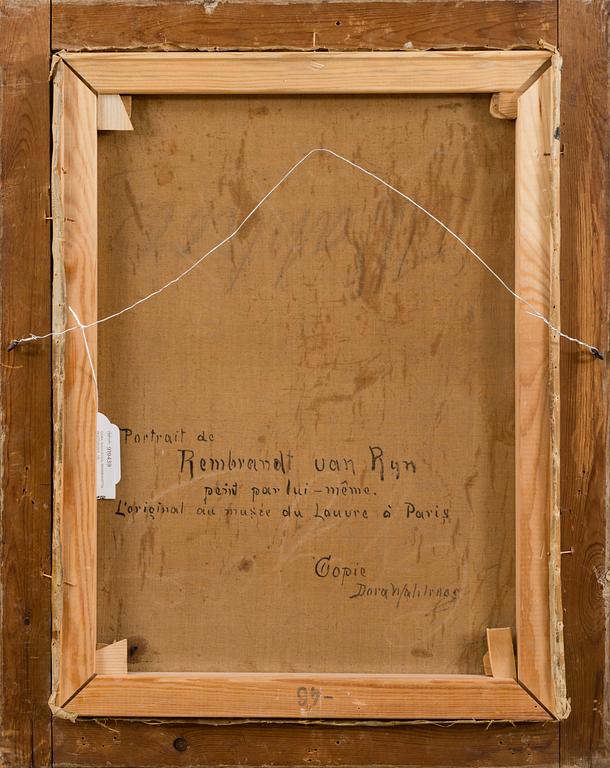 Portrait de
Rembrandt van Ryn
peint par lui-même.
L'original au musée du Louvre à Paris
Copie
Dora Wahlroos
900439
-46